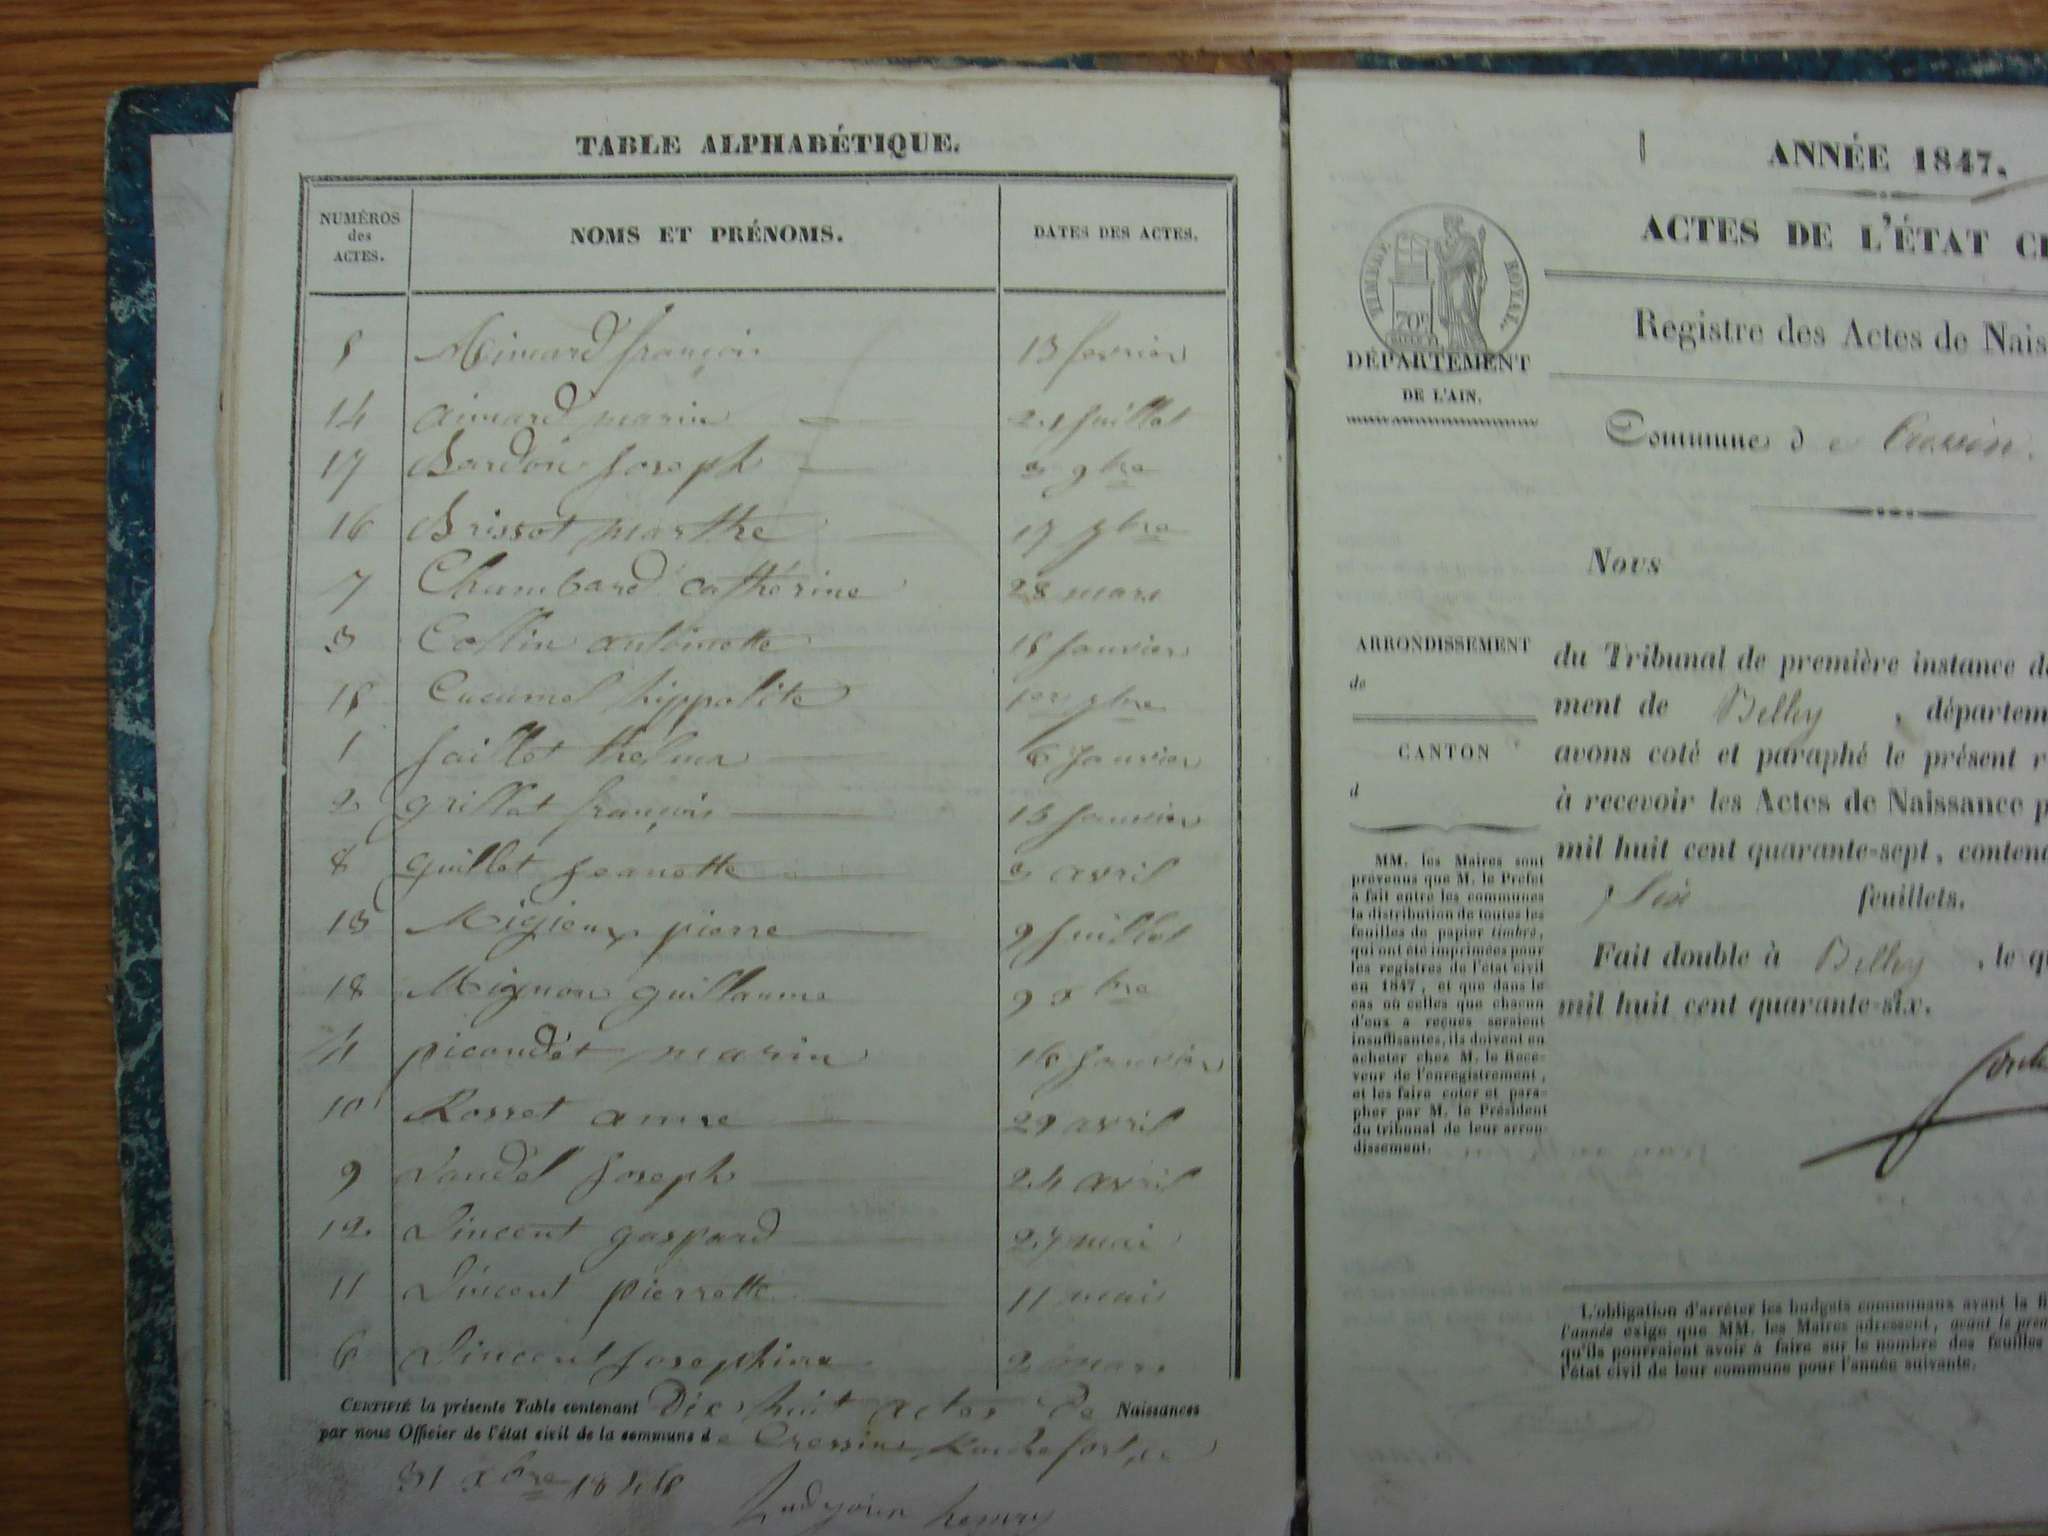 TABLE ALPHABÉTIQUE.
NUMÉROS
des
ACTES.
NOMS ET PRÉNOMS.
DATES DES ACTES.
5 Aimard françois 13 fevrier
14 aimard marie 21 juillet
17 Bardon joseph 3 9bre
16 Brissot marthe 17 7bre
7 Chambard cathérine 28 mars
3 Collin antoinette 15 janvier
15 Cucumel hippolite 1er 7bre
1 faillet 6 janvier
2 grillat françois 13 janvier
8 guillet jeanette 3 avril
13 Migieux pierre 9 juillet
18 Mignon guillaume 9 Xbre
4 picaudét marie 16 janvier
10 Rosset anne 29 avril
9 Vaudel joseph 24 avril
12 Vincent gaspard 27 mai
11 Vincent pierrette 11 mai
6 Vincent josephine 2 mars
CERTIFIÉ la présente Table contenant Dix huit actes De Naissances
par nous Officier de l'état civil de la commune de Cressin Rochefort, le
31 Xbre 1846
ANNÉE 1847.
ACTES DE L'ÉTAT
TIMBRE ROYAL
70c
DÉPARTEMENT
DE L'AIN.
Registre des Actes de
Commune de Cressin.
Nous
ARRONDISSEMENT
de
CANTON
d
du Tribunal de première instance
ment de Belley,
avons coté et paraphé le présent
à recevoir les Actes de Naissance
mil huit cent quarante-sept,
Six feuillets.
Fait double à Belley, le
mil huit cent quarante-six.
MM. les Maires sont
prévenus que M. le Préfet
a fait entre les communes
la distribution de toutes les
feuilles de papier timbré,
qui ont été imprimées pour
les registres de l'état civil
en 1847, et que dans le
cas où celles que chacun
d'eux a reçues seraient
insuffisantes, ils doivent en
acheter chez M. le Rece-
veur de l'enregistrement,
et les faire coter et para-
pher par M. le Président
du tribunal de leur arron-
dissement.
L'obligation d'arrêter les budgets communaux avant la
l'année exige que MM. les Maires adressent, avant le
qu'ils pourraient avoir à faire sur le nombre des feuilles
l'état civil de leur commune pour l'année suivante.